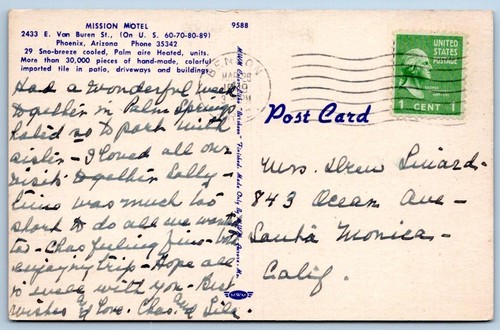 MISSION MOTEL
2433 E. Van Buren St., (On U. S. 60-70-80-89)
Phoenix, Arizona Phone 35342
29 Sno-breeze cooled, Palm aire Heated, units.
More than 30,000 pieces of hand-made, colorful
imported tile in patio, driveways and buildings.
9588
Had a wonderful week
together in Palm Springs
Hated so to part with
sister - I loved all our
visits together Sally -
time was much too
short to do all we wanted
to - Chas feeling fine with
enjoying trip - Hope all
is well with you. Best
wishes & Love. Chas. and
BENSON
MAR 28
PM
UNITED
STATES
POSTAGE
1 CENT 1
Post Card
Mrs. Drew
843 Ocean Ave -
Santa Monica -
Calif.
MWM